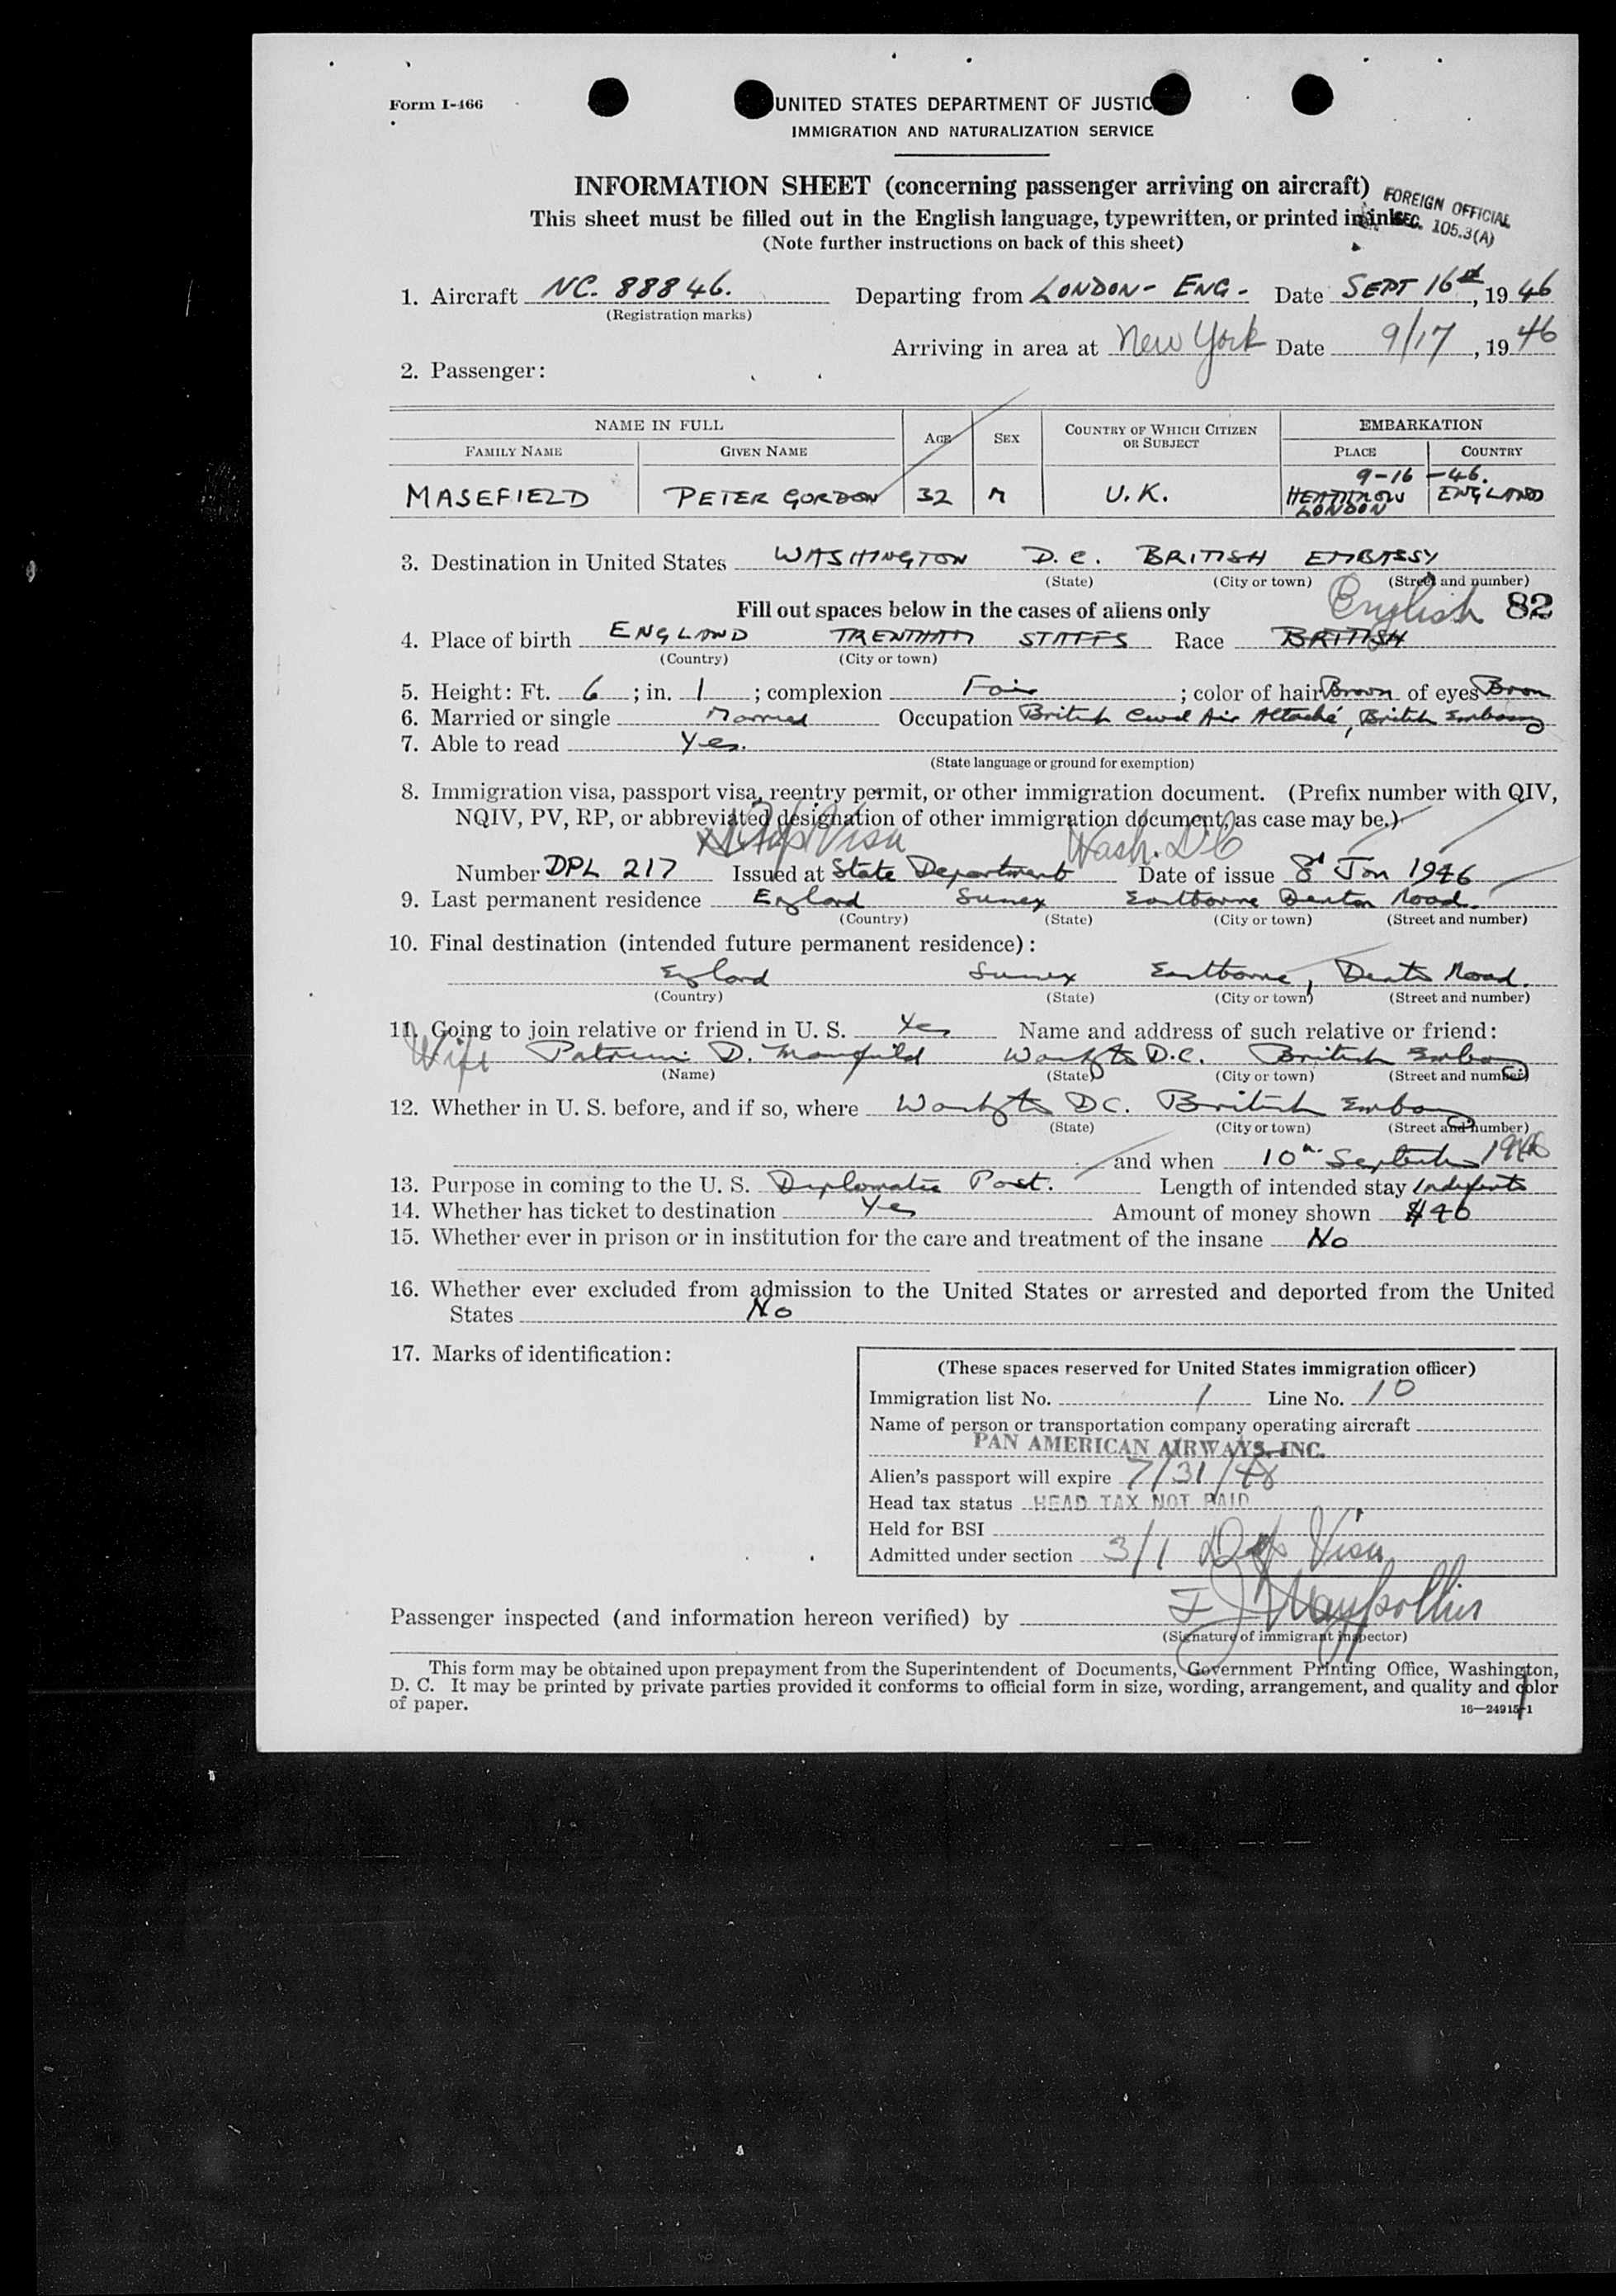 Form I-466
UNITED STATES DEPARTMENT OF JUSTIC
IMMIGRATION AND NATURALIZATION SERVICE
INFORMATION SHEET (concerning passenger arriving on aircraft)
FOREIGN OFFICIAL
SEC. 105.3(A)
This sheet must be filled out in the English language, typewritten, or printed in ink
(Note further instructions on back of this sheet)
1. Aircraft NC. 88846. Departing from LONDON - ENG - Date SEPT 16th, 1946
(Registration marks)
Arriving in area at New York Date 9/17, 1946
2. Passenger:
NAME IN FULL AGE SEX COUNTRY OF WHICH CITIZEN OR SUBJECT EMBARKATION
FAMILY NAME GIVEN NAME PLACE COUNTRY
9-16-46.
MASEFIELD PETER GORDON 32 M U.K. HEATHROW LONDON ENGLAND
3. Destination in United States WASHINGTON D.C. BRITISH EMBASSY
(State) (City or town) (Street and number)
Fill out spaces below in the cases of aliens only English 82
4. Place of birth ENGLAND TRENTHAM STAFFS Race BRITISH
(Country) (City or town)
5. Height: Ft. 6; in. 1; complexion Fair; color of hair Brown of eyes Bron
6. Married or single Married Occupation British Civil Air Attaché, British Embassy
7. Able to read Yes.
(State language or ground for exemption)
8. Immigration visa, passport visa, reentry permit, or other immigration document. (Prefix number with QIV,
NQIV, PV, RP, or abbreviated designation of other immigration document, as case may be.)
Dip Visa Wash. DC
Number DPL 217 Issued at State Department Date of issue 8th Jan 1946
9. Last permanent residence England Sussex Eastbourne Denton Road.
(Country) (State) (City or town) (Street and number)
10. Final destination (intended future permanent residence):
England Sussex Eastbourne, Denton Road.
(Country) (State) (City or town) (Street and number)
11. Going to join relative or friend in U. S. Yes Name and address of such relative or friend:
Wife Patricia D. Masefield Washington D.C. British Embassy
(Name) (State) (City or town) (Street and number)
12. Whether in U. S. before, and if so, where Washington DC. British Embassy
(State) (City or town) (Street and number)
and when 10th September 1946
13. Purpose in coming to the U. S. Diplomatic Post. Length of intended stay Indefinite
14. Whether has ticket to destination Yes Amount of money shown $40
15. Whether ever in prison or in institution for the care and treatment of the insane No
16. Whether ever excluded from admission to the United States or arrested and deported from the United
States No
17. Marks of identification:
(These spaces reserved for United States immigration officer)
Immigration list No. 1 Line No. 10
Name of person or transportation company operating aircraft
PAN AMERICAN AIRWAYS, INC.
Alien's passport will expire 7/31/48
Head tax status HEAD TAX NOT PAID
Held for BSI
Admitted under section 3/1 Dip Visa
Passenger inspected (and information hereon verified) by
(Signature of immigrant inspector)
This form may be obtained upon prepayment from the Superintendent of Documents, Government Printing Office, Washington,
D. C. It may be printed by private parties provided it conforms to official form in size, wording, arrangement, and quality and color
of paper.
16—24915-1